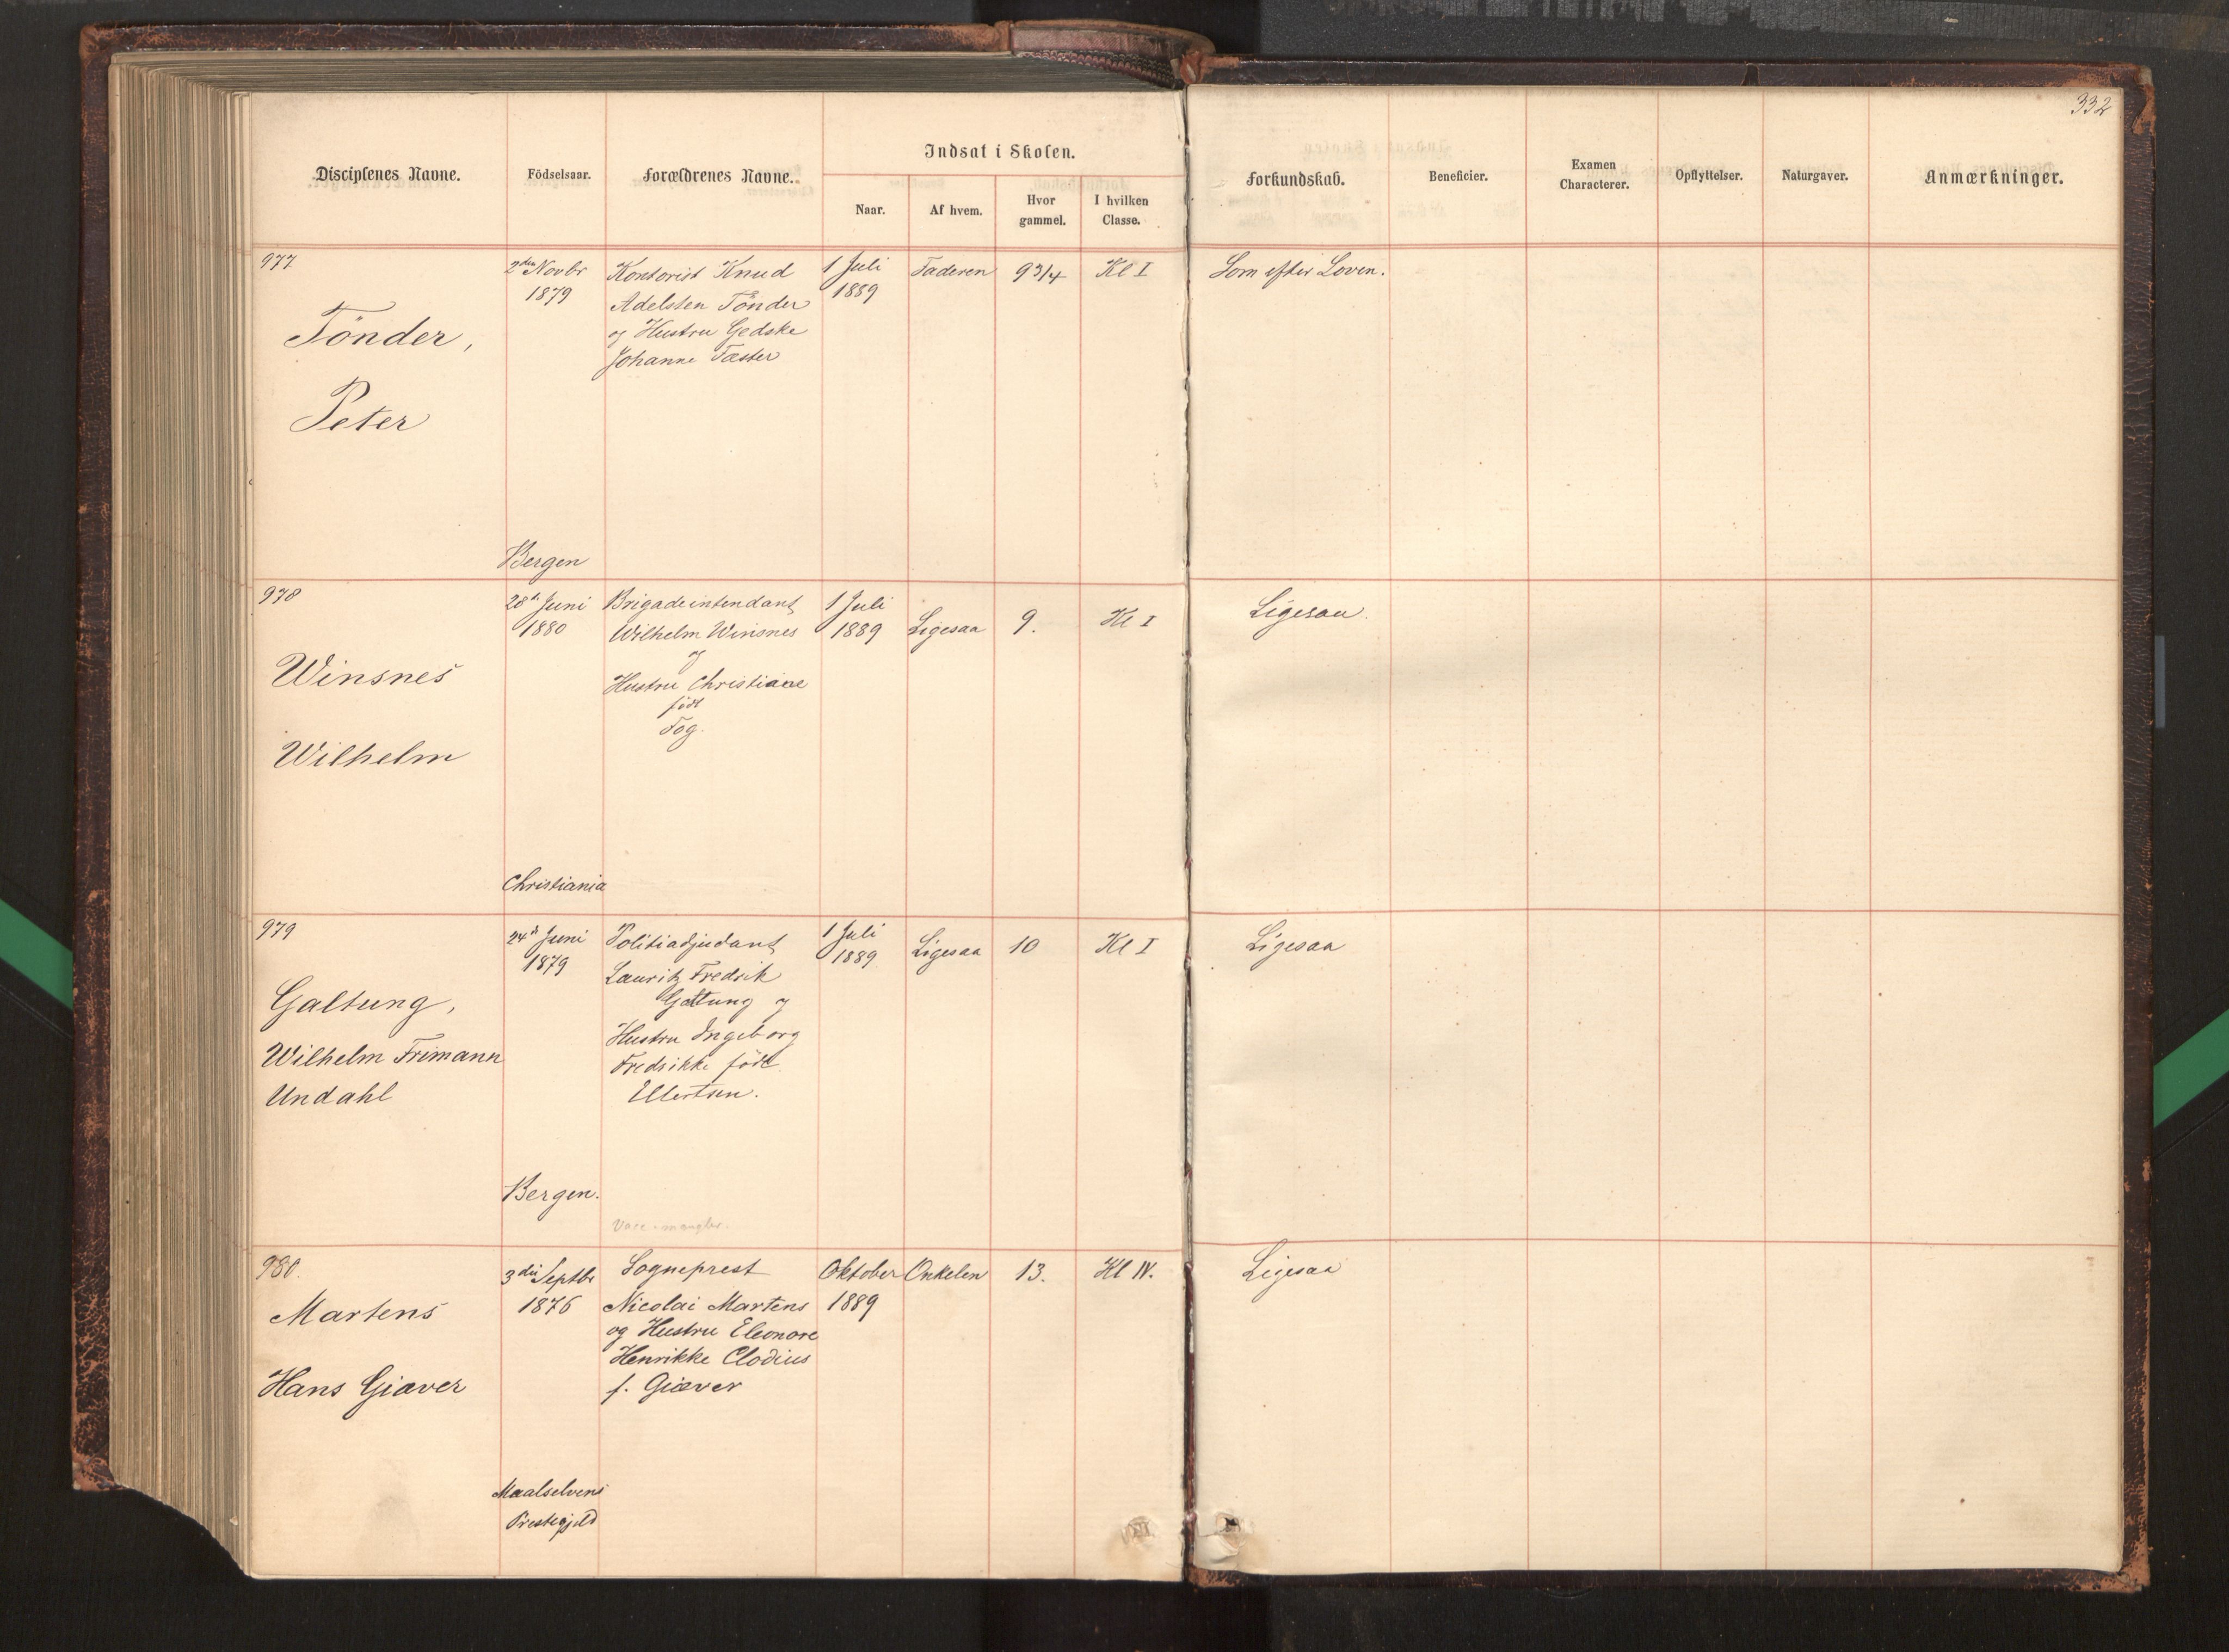 332
Disciplenes Navne.
Födselsaar.
Forældrenes Navne.
Indsat i Skolen.
Naar.
Af hvem.
Hvor gammel.
I hvilken Classe.
Forkundskab.
Beneficier.
Examen Characterer.
Opflyttelser.
Naturgaver.
Anmærkninger.
977
Tönder,
Peter
2den Novbr
1879
Bergen
Kontorist Knud
Adelsten Tönder
og Hustru Gedske
Johanne Fæster
1 Juli
1889
Faderen
9 3/4
Kl I
Som efter Loven.
978
Winsnes
Wilhelm
28de Juni
1880
Christiania
Brigadeintendant
Wilhelm Winsnes
og
Hustru Christiane
født
Fog.
1 Juli
1889
Ligesaa
9.
Kl I
Ligesaa.
979
Galtung,
Wilhelm Frimann
Undahl
24de Juni
1879
Bergen.
Politiadjudant
Lauritz Fredrik
Galtung og
Hustru Ingeborg
Fredrikke født
Ellertsen.
1 Juli
1889
Ligesaa
10
Kl I
Ligesaa
Vacc. mangler.
980.
Martens
Hans Giæver
3die Septbr
1876
Maalselvens
Prestegjeld
Sogneprest
Nicolai Martens
og Hustru Eleonore
Henrikke Clodius
f. Giæver
Oktober
1889
Onkelen
13.
Kl IV.
Ligesaa